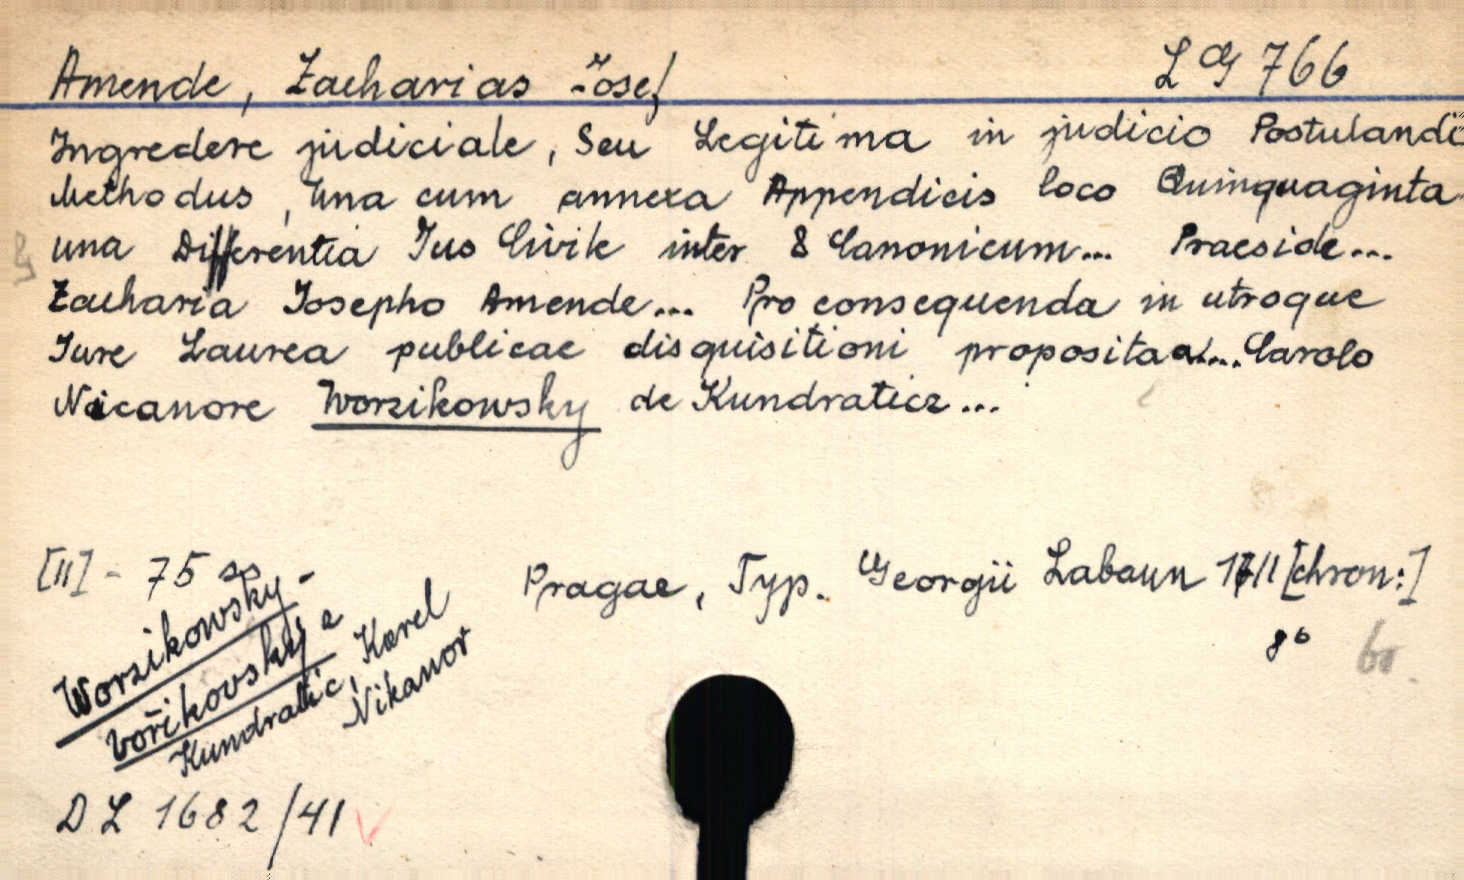 Amende, Zacharias Josef L G 766
Ingredere judiciale, Seu Legitima in judicio Postulandi
Methodus, una cum annexa Appendicis loco Quinquaginta
una Differentia Jus Civile inter & Canonicum... Praeside...
Zacharia Josepho Amende... Pro consequenda in utroque
Jure Laurea publicae disquisitioni proposita... Carolo
Nicanore Worzikowsky de Kundraticz...
[II] - 75 ss
Pragae, Typ. Georgii Labaun 1711 [chron:]
8°
Worzikowsky -
Vořikovský z
Kundratic, Karel
Nikanor
D L 1682/41